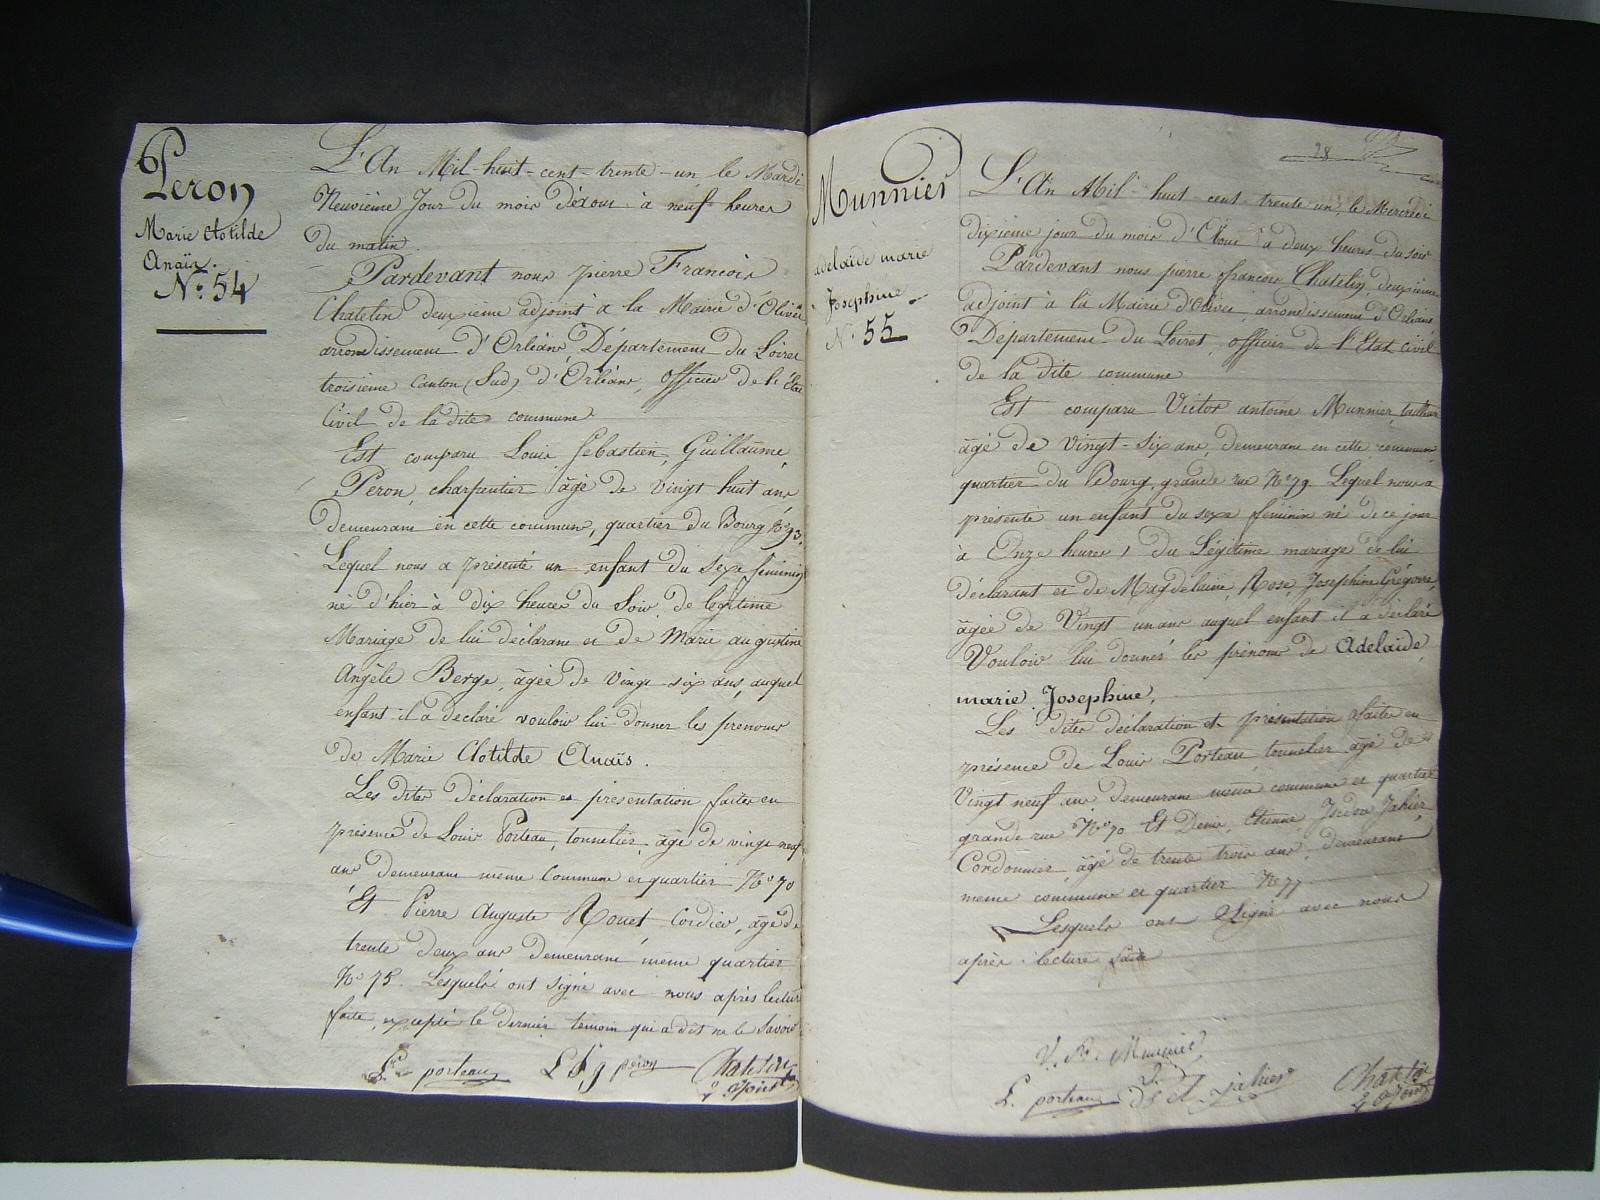 Peron
Marie Clotilde
Anaïs.
N.º 54
L'An Mil-huit-cent-trente-un le Mardi
Neuvième Jour du mois d'Aout à neuf heures
du matin.
Pardevant nous pierre François
Chatelin deuxième adjoint à la Mairie d'Olivet
arrondissement d'Orléans, Département du Loiret
troisième Canton (Sud) d'Orléans, officier de l'État
Civil de la dite commune.
Est comparu Louis Sebastien, Guillaume,
Peron, charpentier âgé de vingt huit ans
demeurant en cette commune, quartier du Bourg Nº 93.
Lequel nous a présenté un enfant du sexe féminin
né d'hier à dix heures du Soir, de légitime
Mariage de lui déclarant et de Marie augustine
Angèle Berge, âgée de vingt-six ans, auquel
enfant il a déclaré vouloir lui donner les prenoms
de Marie Clotilde Anaïs.
Les dites déclaration et présentation faites en
présence de Louis Porteau, tonnelier, âgé de vingt neuf
ans demeurant même Commune et quartier Nº 70
Et Pierre Auguste Rouet Cordier, âgé de
trente deux ans demeurant même quartier
Nº 75. Lesquels ont signé avec nous après lecture
faite, excepté le dernier témoin qui a dit ne le savoir
L. porteau L S g peron Chatelin
2 adjoint
28
Munnier
adelaïde marie
Josephine
Nº 55
L'An Mil huit cent trente un, le Mercredi
dixième jour du mois d'Aout à deux heures du soir
Pardevant nous pierre françois Chatelin, deuxième
adjoint à la Mairie d'Olivet, arrondissement d'Orléans
Département du Loiret, officier de l'État civil
de la dite commune
Est comparu Victor antoine Munnier, tailleur
âgé de vingt-six ans, demeurant en cette commune,
quartier du Bourg, grande rue Nº 79. Lequel nous a
présenté un enfant du sexe féminin né de ce jour
à Onze heures, du Légitime mariage de lui
déclarant et de Magdelaine, Rose, Josephine Grégoire,
âgée de Vingt un ans auquel enfant il a déclaré
Vouloir lui donner les prénoms de Adelaïde,
marie Josephine,
Les dites déclaration et présentation faites en
présence de Louis Porteau, tonnelier âgé de
Vingt neuf ans demeurant même commune et quartier
grande rue Nº 70 Et Denis, Etienne, Isidor Jahier,
Cordonnier, âgé de trente trois ans, demeurant
meme commune et quartier Nº 77
Lesquels ont Signé avec nous
après lecture faite
V. A. Munnier
L. porteau D. E. I. jahier Chatelin
2 adjoint